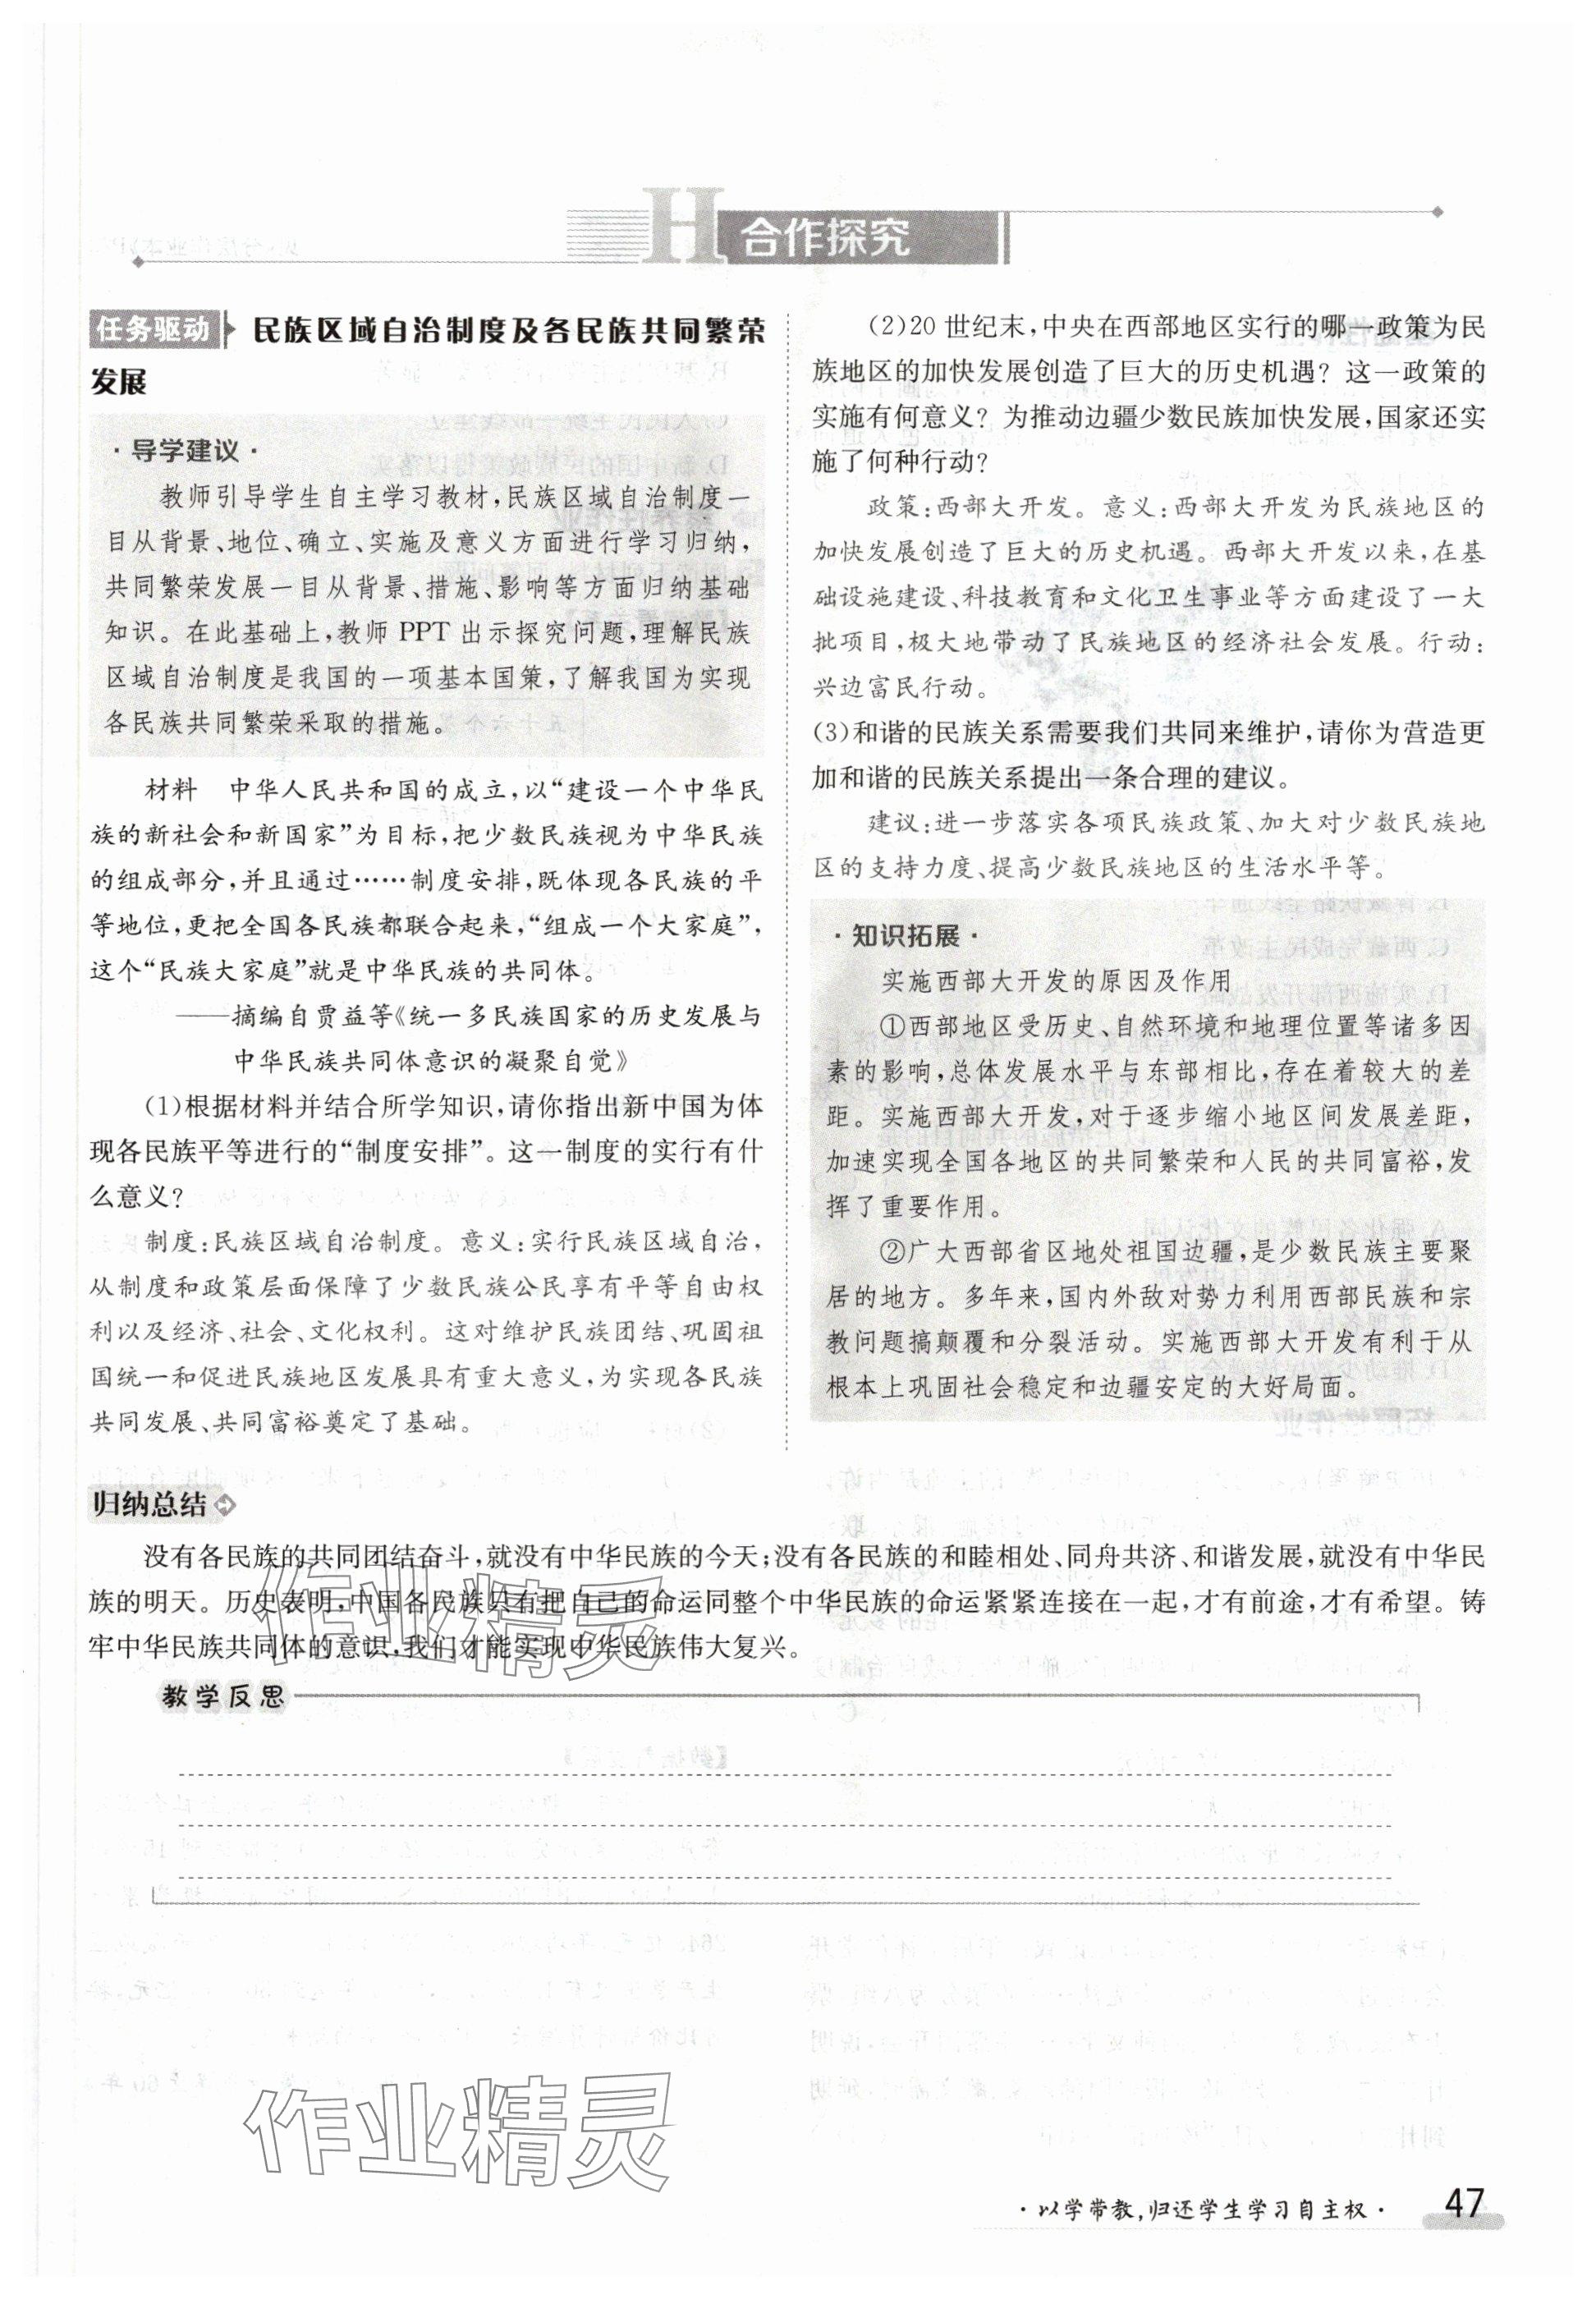 H 合作探究
任务驱动 民族区域自治制度及各民族共同繁荣
发展
·导学建议·
教师引导学生自主学习教材,民族区域自治制度一
目从背景、地位、确立、实施及意义方面进行学习归纳,
共同繁荣发展一目从背景、措施、影响等方面归纳基础
知识。在此基础上,教师 PPT 出示探究问题,理解民族
区域自治制度是我国的一项基本国策,了解我国为实现
各民族共同繁荣采取的措施。
材料 中华人民共和国的成立,以“建设一个中华民
族的新社会和新国家”为目标,把少数民族视为中华民族
的组成部分,并且通过……制度安排,既体现各民族的平
等地位,更把全国各民族都联合起来,“组成一个大家庭”,
这个“民族大家庭”就是中华民族的共同体。
——摘编自贾益等《统一多民族国家的历史发展与
中华民族共同体意识的凝聚自觉》
(1)根据材料并结合所学知识,请你指出新中国为体
现各民族平等进行的“制度安排”。这一制度的实行有什
么意义?
制度:民族区域自治制度。意义:实行民族区域自治,
从制度和政策层面保障了少数民族公民享有平等自由权
利以及经济、社会、文化权利。这对维护民族团结、巩固祖
国统一和促进民族地区发展具有重大意义,为实现各民族
共同发展、共同富裕奠定了基础。
(2)20 世纪末,中央在西部地区实行的哪一政策为民
族地区的加快发展创造了巨大的历史机遇?这一政策的
实施有何意义?为推动边疆少数民族加快发展,国家还实
施了何种行动?
政策:西部大开发。意义:西部大开发为民族地区的
加快发展创造了巨大的历史机遇。西部大开发以来,在基
础设施建设、科技教育和文化卫生事业等方面建设了一大
批项目,极大地带动了民族地区的经济社会发展。行动:
兴边富民行动。
(3)和谐的民族关系需要我们共同来维护,请你为营造更
加和谐的民族关系提出一条合理的建议。
建议:进一步落实各项民族政策、加大对少数民族地
区的支持力度、提高少数民族地区的生活水平等。
·知识拓展·
实施西部大开发的原因及作用
①西部地区受历史、自然环境和地理位置等诸多因
素的影响,总体发展水平与东部相比,存在着较大的差
距。实施西部大开发,对于逐步缩小地区间发展差距,
加速实现全国各地区的共同繁荣和人民的共同富裕,发
挥了重要作用。
②广大西部省区地处祖国边疆,是少数民族主要聚
居的地方。多年来,国内外敌对势力利用西部民族和宗
教问题搞颠覆和分裂活动。实施西部大开发有利于从
根本上巩固社会稳定和边疆安定的大好局面。
归纳总结
没有各民族的共同团结奋斗,就没有中华民族的今天;没有各民族的和睦相处、同舟共济、和谐发展,就没有中华民
族的明天。历史表明,中国各民族只有把自己的命运同整个中华民族的命运紧紧连接在一起,才有前途,才有希望。铸
牢中华民族共同体的意识,我们才能实现中华民族伟大复兴。
作业精灵
教学反思
作业精灵
·以学带教,归还学生学习自主权· 47